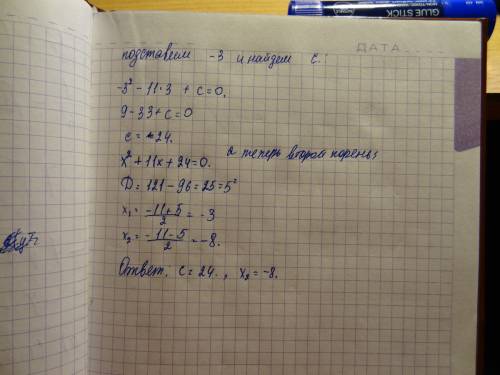 GLUE STICK
ДАТА
подставим -3 и найдем c:
-3² - 11·3 + c = 0.
9 - 33 + c = 0
c = 24.
x² + 11x + 24 = 0. а теперь второй корень:
D = 121 - 96 = 25 = 5²
x₁ = (-11+5)/2 = -3
x₂ = (-11-5)/2 = -8.
Ответ: c = 24., x₂ = -8.